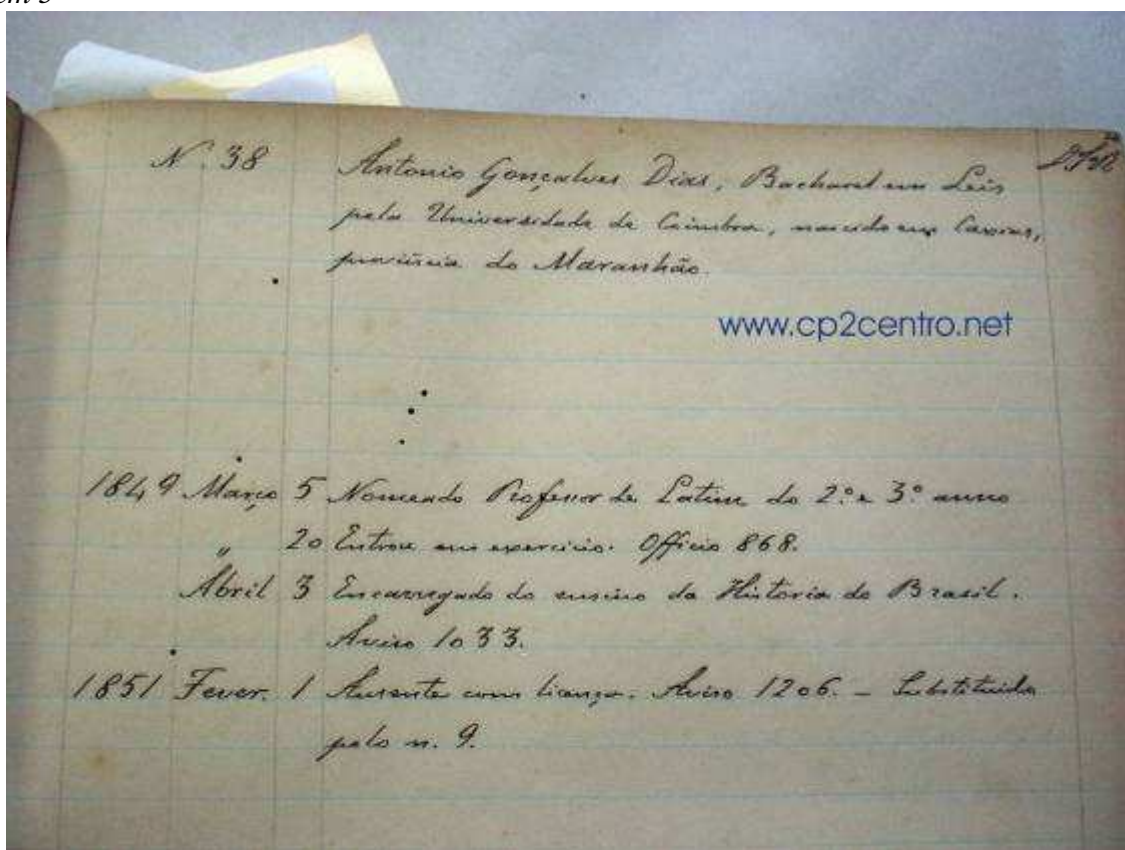 N. 38 Antonio Gonçalves Dias, Bacharel em Leis
pela Universidade de Coimbra, nascido em Caxias,
provincia do Maranhão.
www.cp2centro.net
1849 Março 5 Nomeado Professor de Latim do 2º e 3º anno
" 20 Entrou em exercicio. Officio 868.
Abril 3 Encarregado do ensino da Historia do Brasil.
Aviso 1033.
1851 Fever. 1 Ausente com licença. Aviso 1206. – Substituido
pelo n. 9.